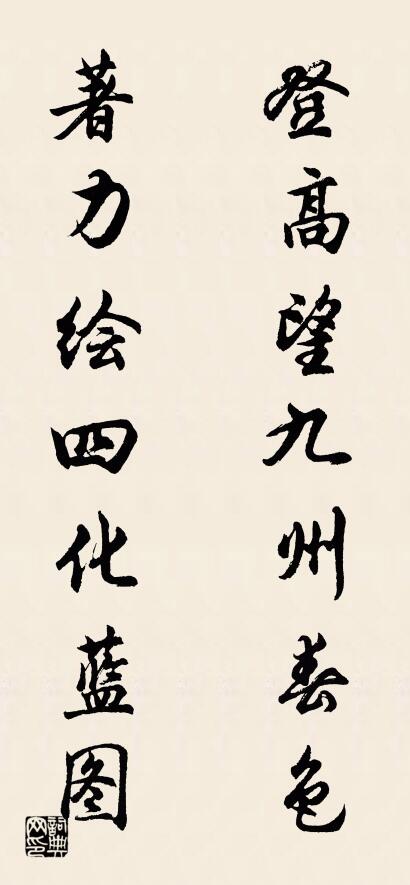 登高望九州春色
著力绘四化蓝图
詞典网印